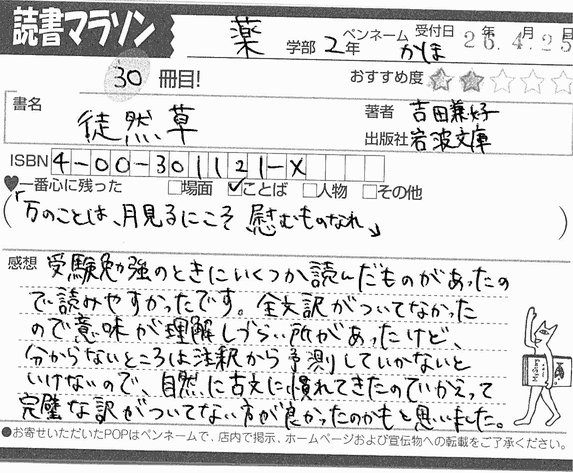 読書マラソン
薬 学部 2年 ペンネーム かほ 受付日 26年4月25日
30 冊目! おすすめ度 ★★☆☆☆
書名 徒然草
著者 吉田兼好
出版社 岩波文庫
ISBN 4-00-301121-X
♥一番心に残った □場面 ☑ことば □人物 □その他
(「万のことは、月見るにこそ慰むものなれ」)
感想 受験勉強のときにいくつか読んだものがあったの
で読みやすかったです。全文訳がついてなかった
ので意味が理解しづらい所があったけど、
分からないところは注釈から予測していかないと
いけないので、自然に古文に慣れてきたのでいかえって
完璧な訳がついてない方が良かったのかもと思いました。
●お寄せいただいたPOPはペンネームで、店内で掲示、ホームページおよび宣伝物への転載をご了承ください。